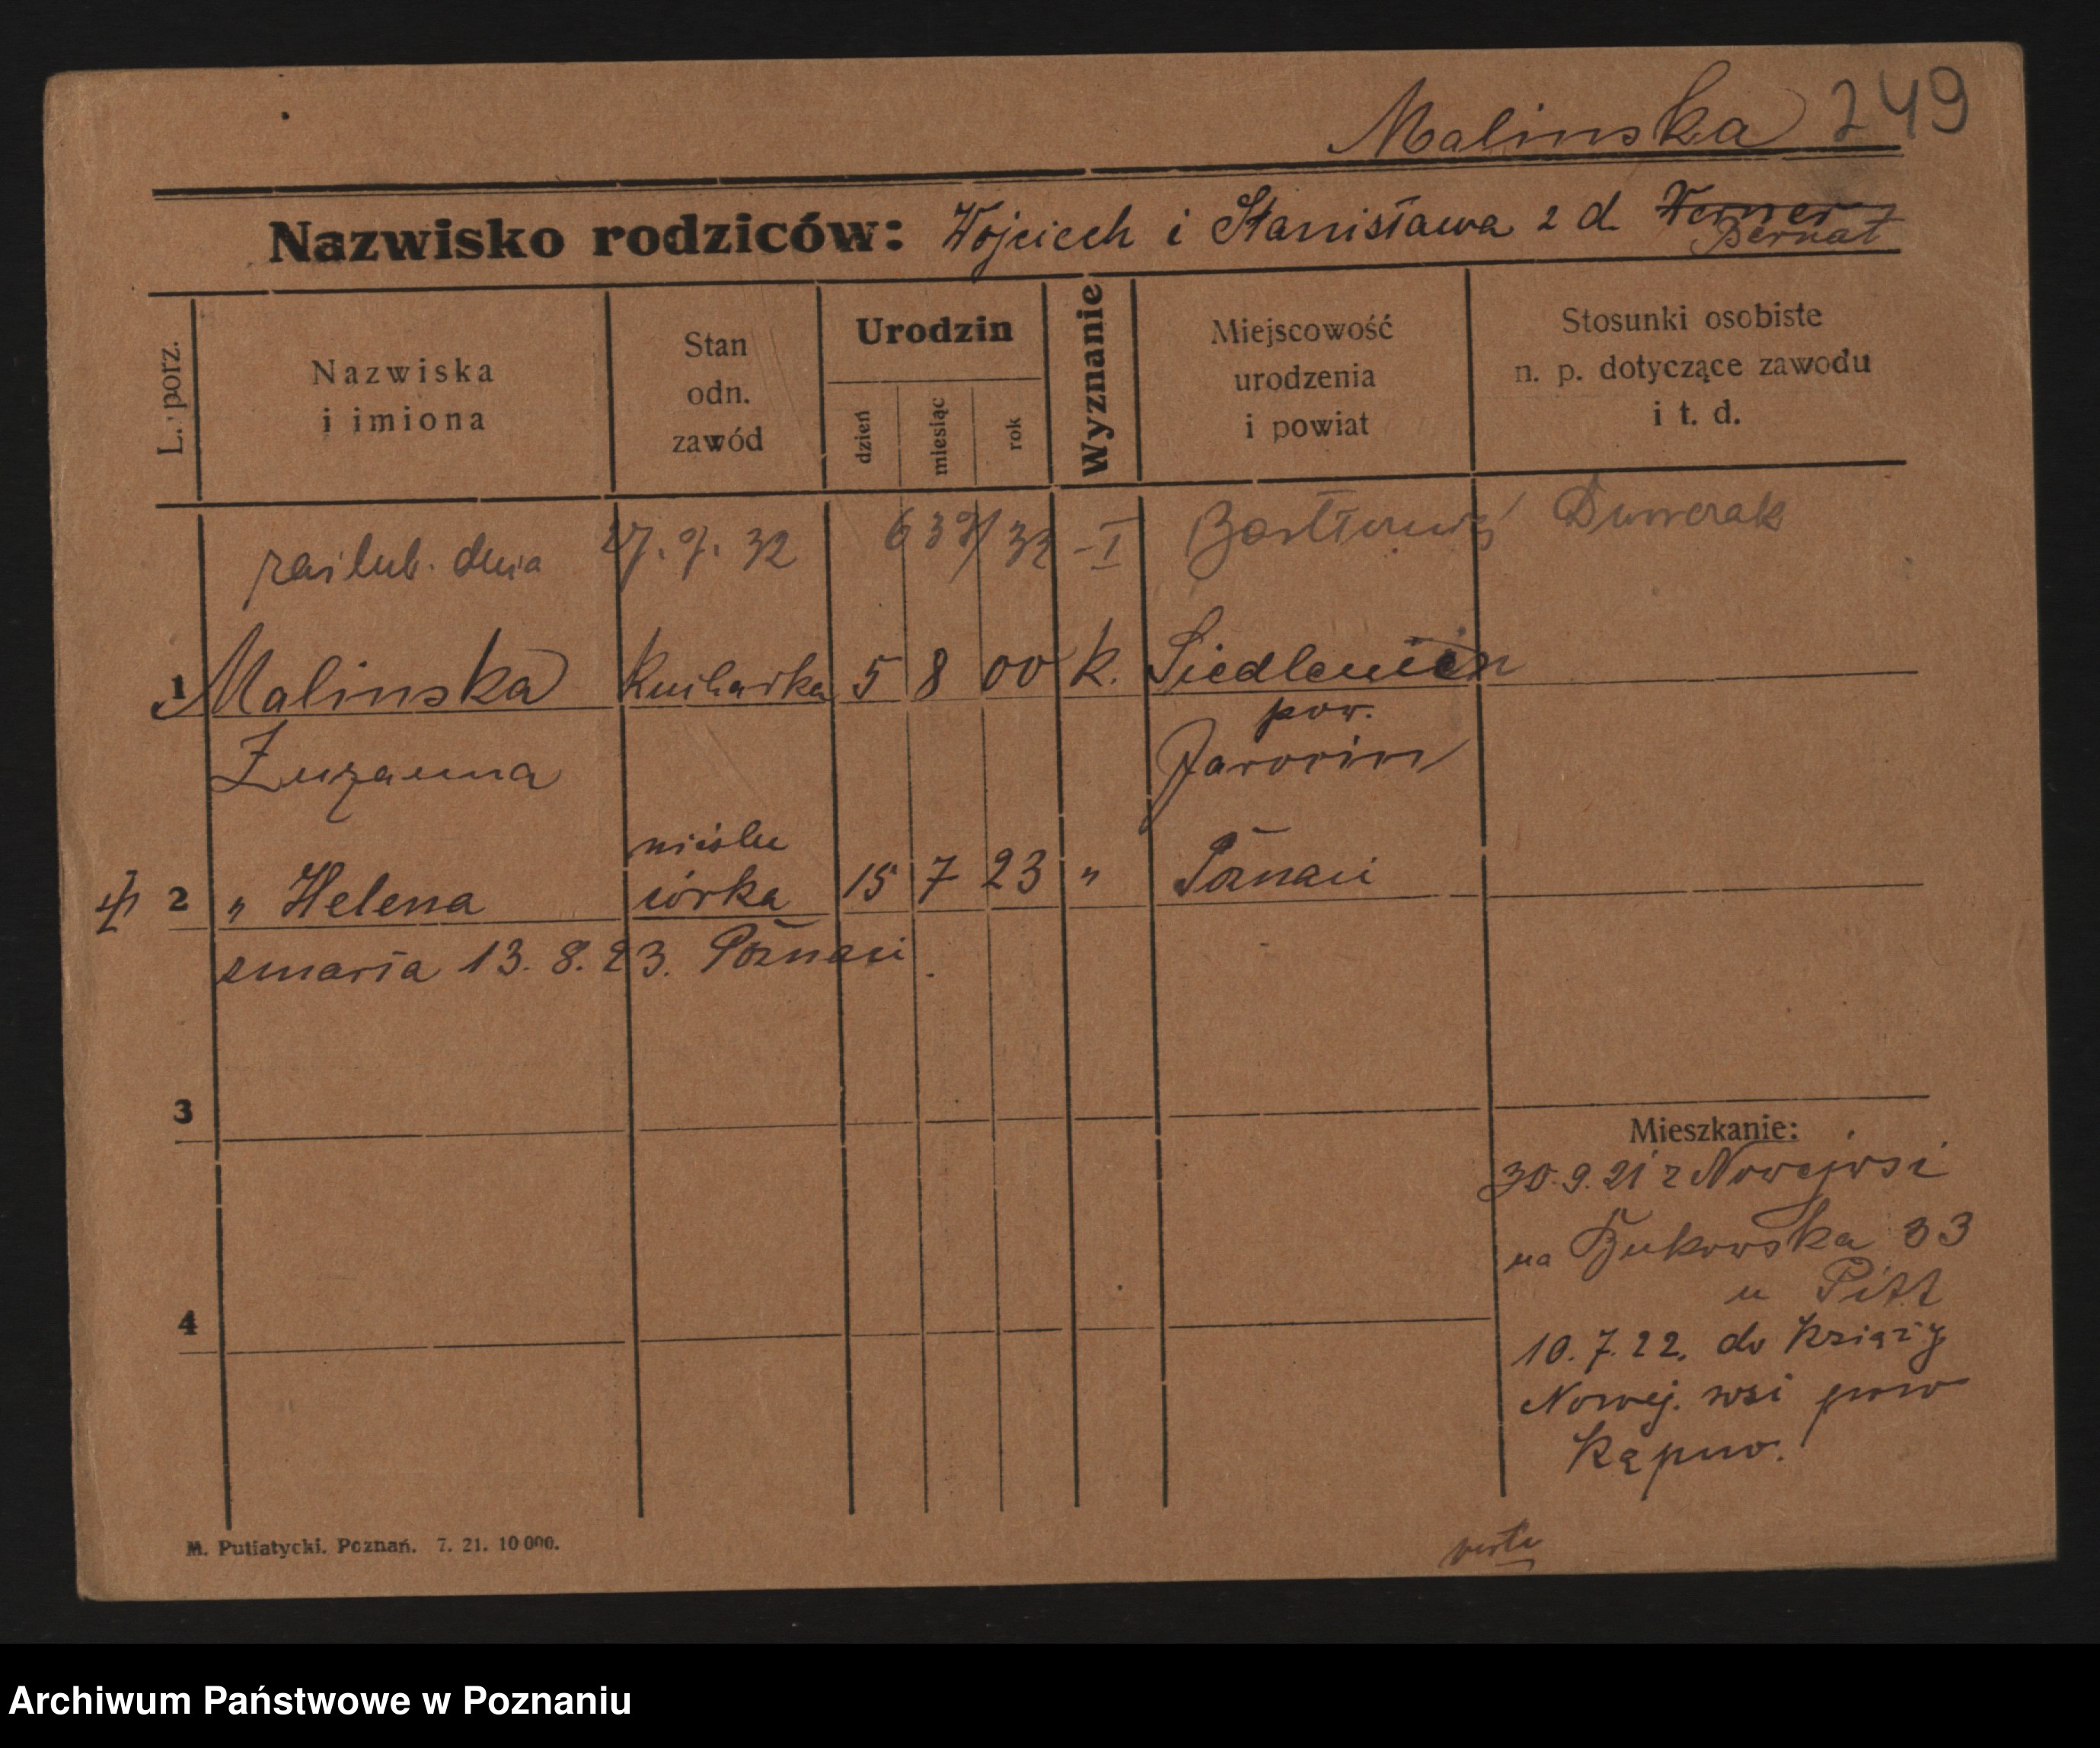 Malinska 249
Nazwisko rodziców: Wojciech i Stanisława z d. Werner
Bernat
L. porz.
Nazwiska
i imiona
Stan
odn.
zawód
Urodzin
dzień
miesiąc
rok
Wyznanie
Miejscowość
urodzenia
i powiat
Stosunki osobiste
n. p. dotyczące zawodu
i t. d.
zaślub. dnia 27. 9. 32 639/32 -I
1 Malinska kucharka 5 8 00 k. Siedlemin
pow.
Zuzanna Jarocin
nieślu
2 " Helena córka 15 7 23 " Poznań
zmarła 13. 8. 23. Poznań.
3
Mieszkanie:
30.9.21 z Nowejwsi
na Bukowska 33
u Pitt
4
10.7.22. do Książy
Nowej. wsi pow
M. Putiatycki. Poznań. 7. 21. 10 000.
verte
Archiwum Państwowe w Poznaniu